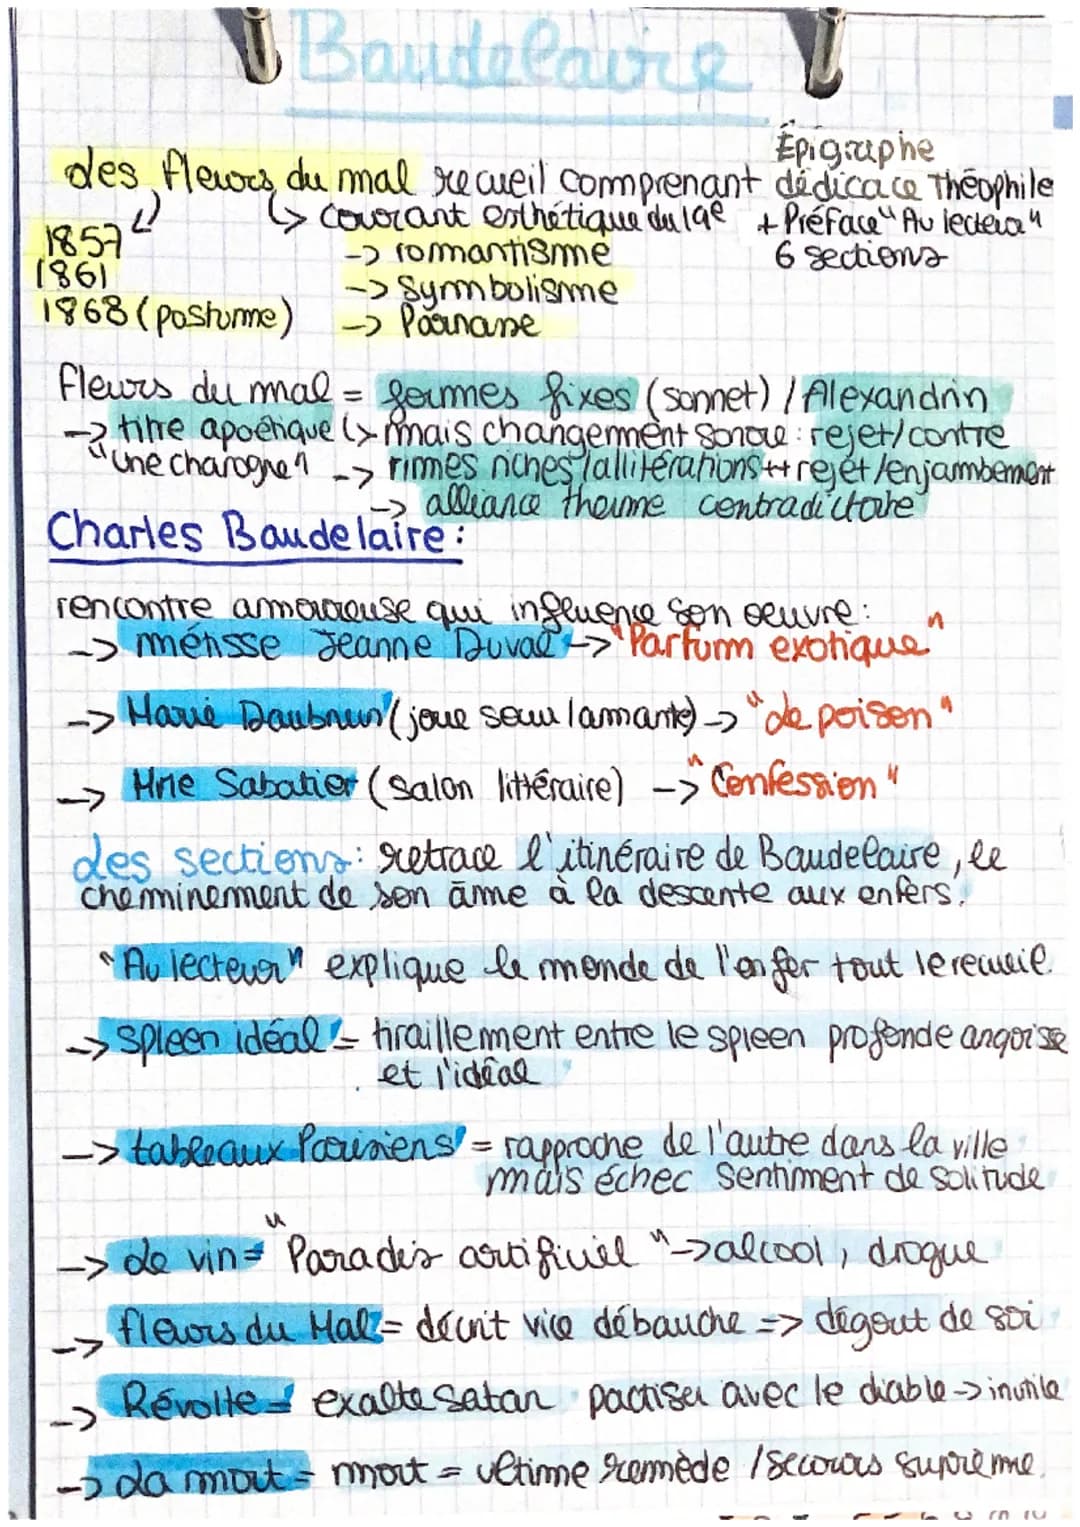 Baudelaire
Épigraphe
Les fleurs du mal recueil comprenant dédicace Théophile
↳ courant esthétique du 19e + Préface "Au lecteur"
1857 -> romantisme 6 sections
1861 -> Symbolisme
1868 (postume) -> Parnasse
Fleurs du mal = formes fixes (sonnet) / Alexandrin
-> titre apoétique ↳ mais changement sonore : rejet/contre
"Une charogne" -> rimes riches/allitérations ++ rejet/enjambement
-> alliance theume contradictoire
Charles Baudelaire :
rencontre amoureuse qui influence son oeuvre :
-> métisse Jeanne Duval -> "Parfum exotique"
-> Marie Daubrun (joue sœur/amante) -> "Le poison"
-> Mme Sabatier (Salon littéraire) -> "Confession"
Les sections : retrace l'itinéraire de Baudelaire, le
cheminement de son âme à la descente aux enfers.
"Au lecteur" explique le monde de l'enfer tout le recueil.
-> Spleen idéal = tiraillement entre le spleen profonde angoisse
et l'idéal
-> tableaux Parisiens = rapproche de l'autre dans la ville
mais échec Sentiment de solitude
-> Le vin = "Paradis artificiel" -> alcool, drogue
-> fleurs du Mal = décrit vice débauche => dégout de soi
-> Révolte = exalte Satan pactiser avec le diable -> inutile
-> La mort = mort = ultime remède / Secours suprême.